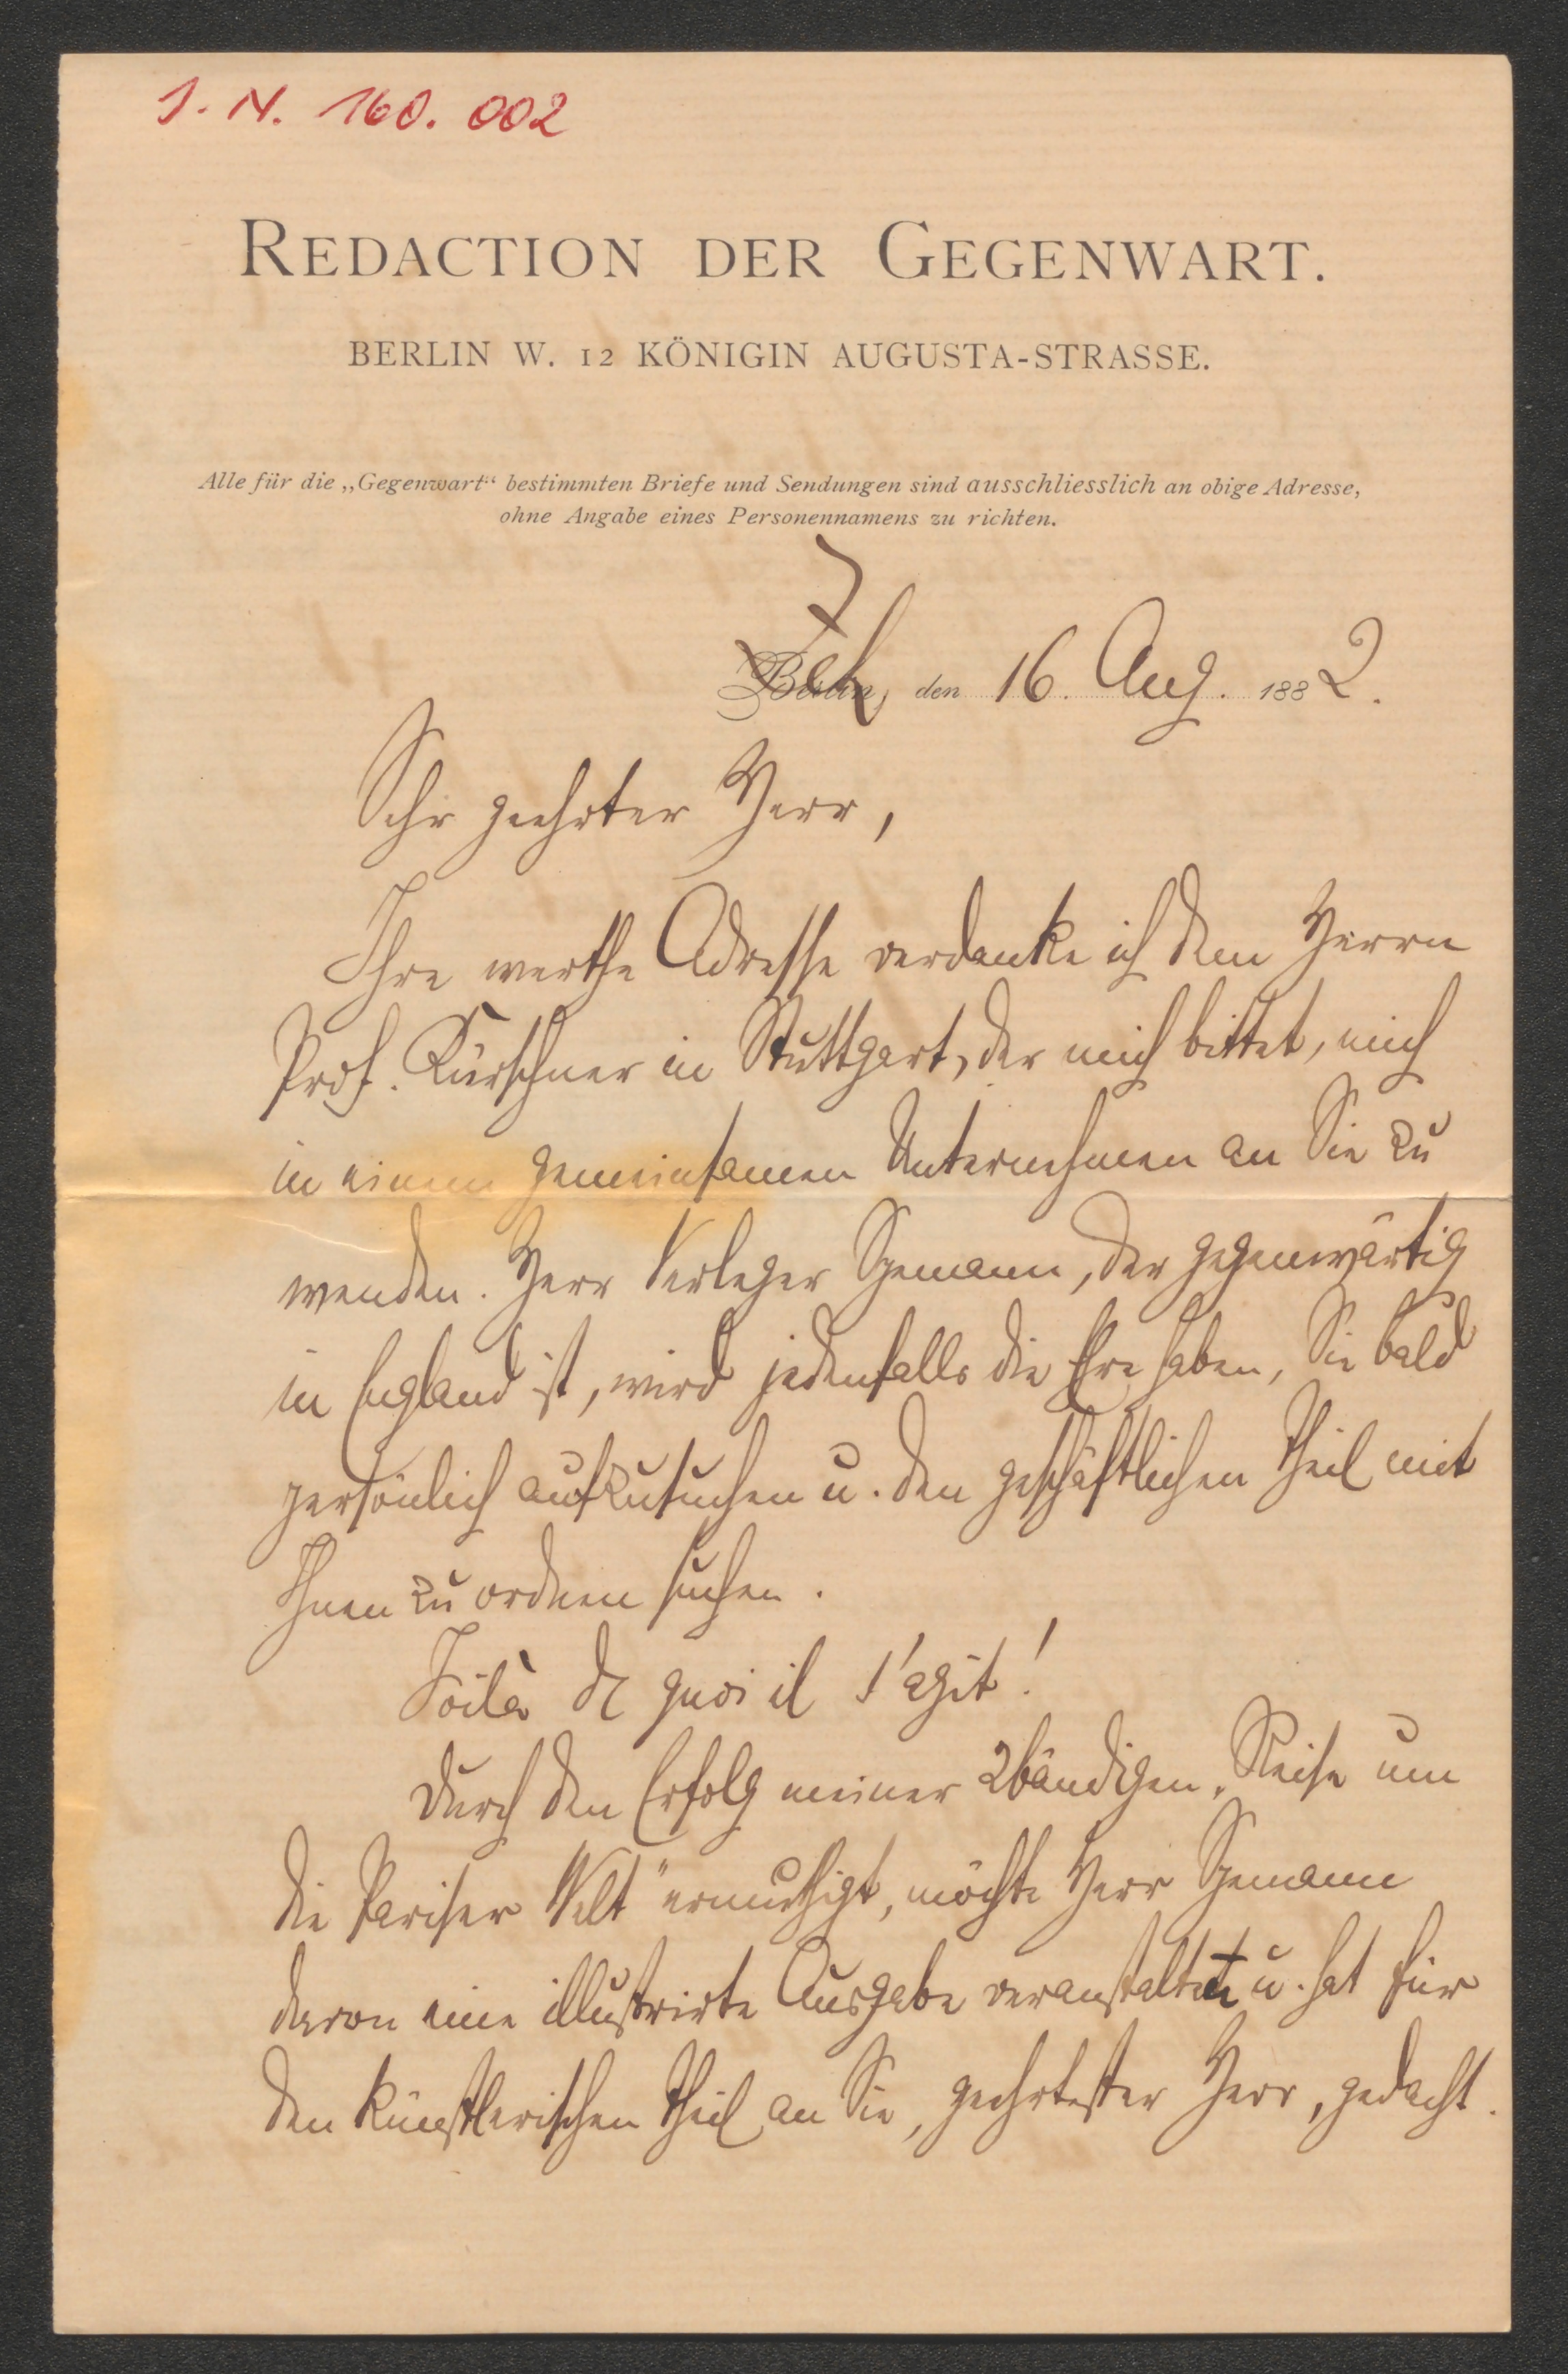 J. N. 160.002
REDACTION DER GEGENWART.
BERLIN W. 12 KÖNIGIN AUGUSTA-STRASSE.
Alle für die „Gegenwart“ bestimmten Briefe und Sendungen sind ausschliesslich an obige Adresse,
ohne Angabe eines Personennamens zu richten.
Berlin, den 16. Aug. 1882.
Sehr geehrter Herr,
Ihre werthe Adresse verdanke ich dem Herrn
Prof. Kürschner in Stuttgart, der mich bittet, mich
in einem gemeinsamen Unternehmen an Sie zu
wenden. Herr Verleger Spemann, der gegenwärtig
in England ist, wird jedenfalls die Ehre haben, Sie bald
persönlich aufzusuchen u. den geschäftlichen Theil mit
Ihnen zu ordnen suchen.
Voilà de quoi il s'agit!
Durch den Erfolg meiner 2bändigen „Reise um
die Pariser Welt" ermuthigt, möchte Herr Spemann
davon eine illustrirte Ausgabe veranstalten u. hat für
den künstlerischen Theil an Sie, geehrtester Herr, gedacht.